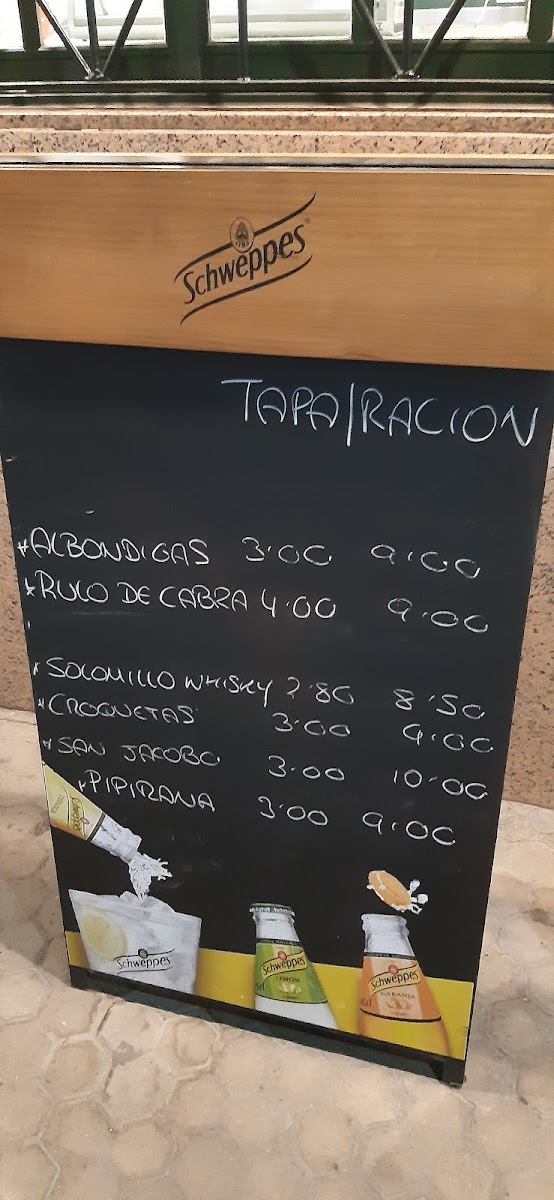 Schweppes
TAPA/RACION
*ALBONDIGAS 3'00 9'00
*RULO DE CABRA 4'00 9'00
*SOLOMILLO WHISKY 2'80 8'50
*CROQUETAS 3'00 9'00
*SAN JACOBO 3'00 10'00
*PIPIRANA 3'00 9'00
Schweppes
Schweppes
Schweppes
LIMÓN
Schweppes
NARANJA